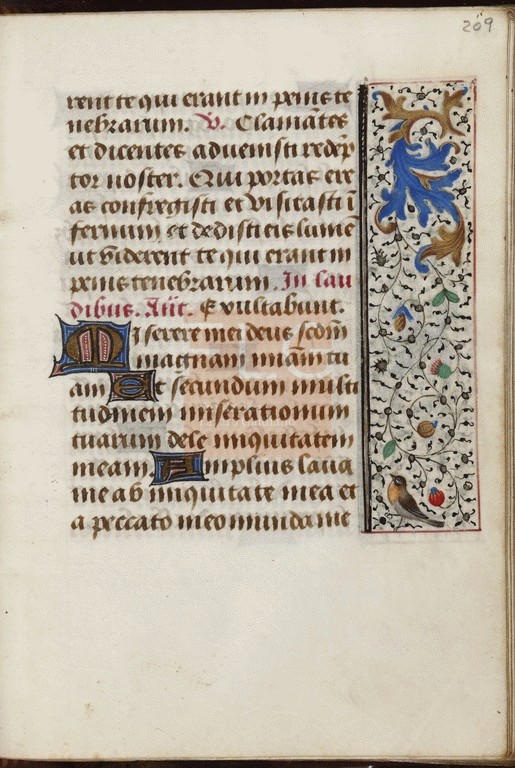 209
rent te qui erant in penis te
nebrarum. V. Clamātes
et dicentes advenisti redēp
tor noster. Qui portas ere
as confregisti et visitasti ī
fernum et dedisti eis lumē
ut viderent te qui erant in
penis tenebrarum. In lau
dibus. Añt. Exultabunt.
Miserere mei deus scdm̄
magnam miam̄ tu
am Et secundum multi
tudinem miserationum
tuarum dele iniquitatem
meam. Amplius lava
me ab iniquitate mea et
a peccato meo munda me